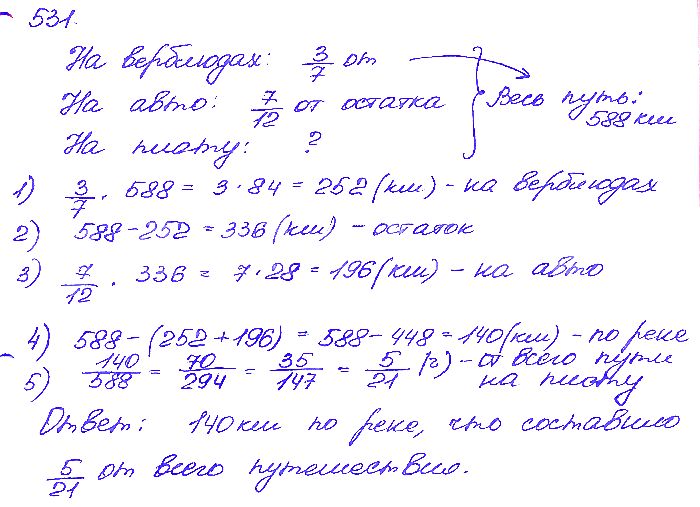 531.
На верблюдах: 3/7 от
На авто: 7/12 от остатка
На плоту: ?
Весь путь:
588 км
1) 3/7 · 588 = 3 · 84 = 252 (км) - на верблюдах
2) 588 - 252 = 336 (км) - остаток
3) 7/12 · 336 = 7 · 28 = 196 (км) - на авто
4) 588 - (252 + 196) = 588 - 448 = 140 (км) - по реке
5) 140/588 = 70/294 = 35/147 = 5/21 (ч) - от всего пути
на плоту
Ответ: 140 км по реке, что составило
5/21 от всего путешествия.